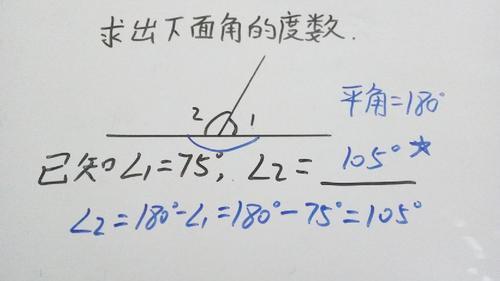 求出下面角的度数.
2 1
平角=180°
已知∠1=75°, ∠2= 105° ☆
∠2=180°-∠1=180°-75°=105°